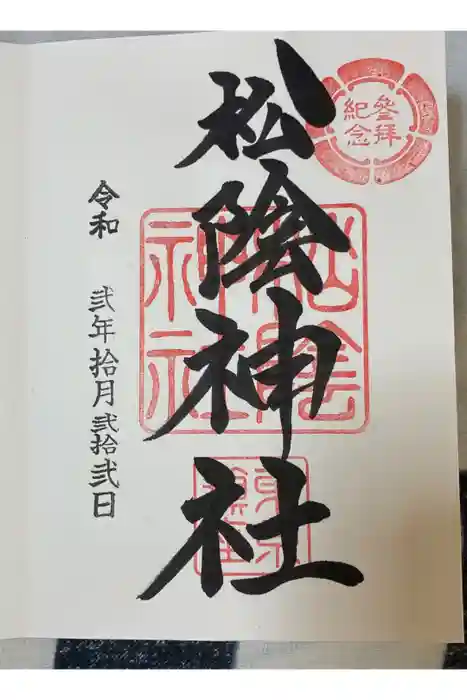 參拝
紀念
松陰神社
松陰
神社
令和 弐年拾月弐拾弐日